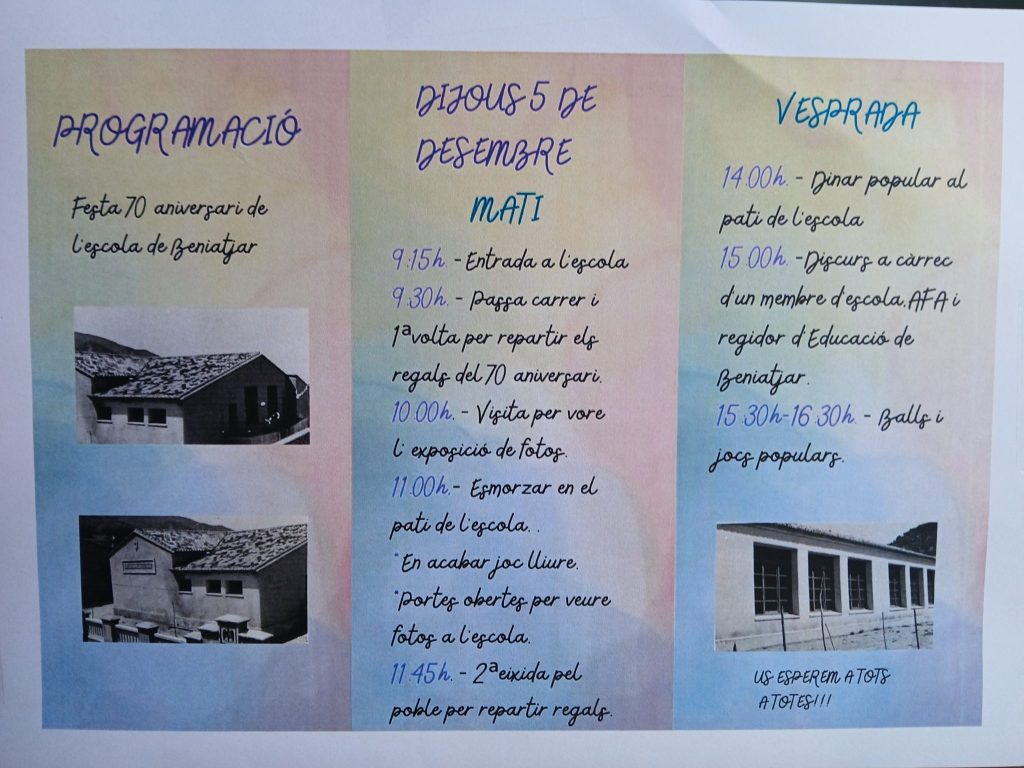 PROGRAMACIÓ
Festa 70 aniversari de
l'escola de Beniatjar
DIJOUS 5 DE
DESEMBRE
MATI
9:15h. - Entrada a l'escola
9:30h. - Passa carrer i
1ª volta per repartir els
regals del 70 aniversari.
10:00h. - Visita per vore
l' exposició de fotos.
11:00h. - Esmorzar en el
pati de l'escola. .
*En acabar joc lliure.
*Portes obertes per veure
fotos a l'escola.
11:45h. - 2ª eixida pel
poble per repartir regals.
VESPRADA
14:00h. - Dinar popular al
pati de l'escola
15:00h. -Discurs a càrrec
d'un membre d'escola, AFA i
regidor d'Educació de
Beniatjar.
15:30h-16:30h. - Balls i
jocs populars.
US ESPEREM A TOTS
A TOTES!!!